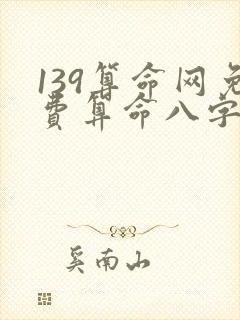 139算命网免
费算命八字
奚南山